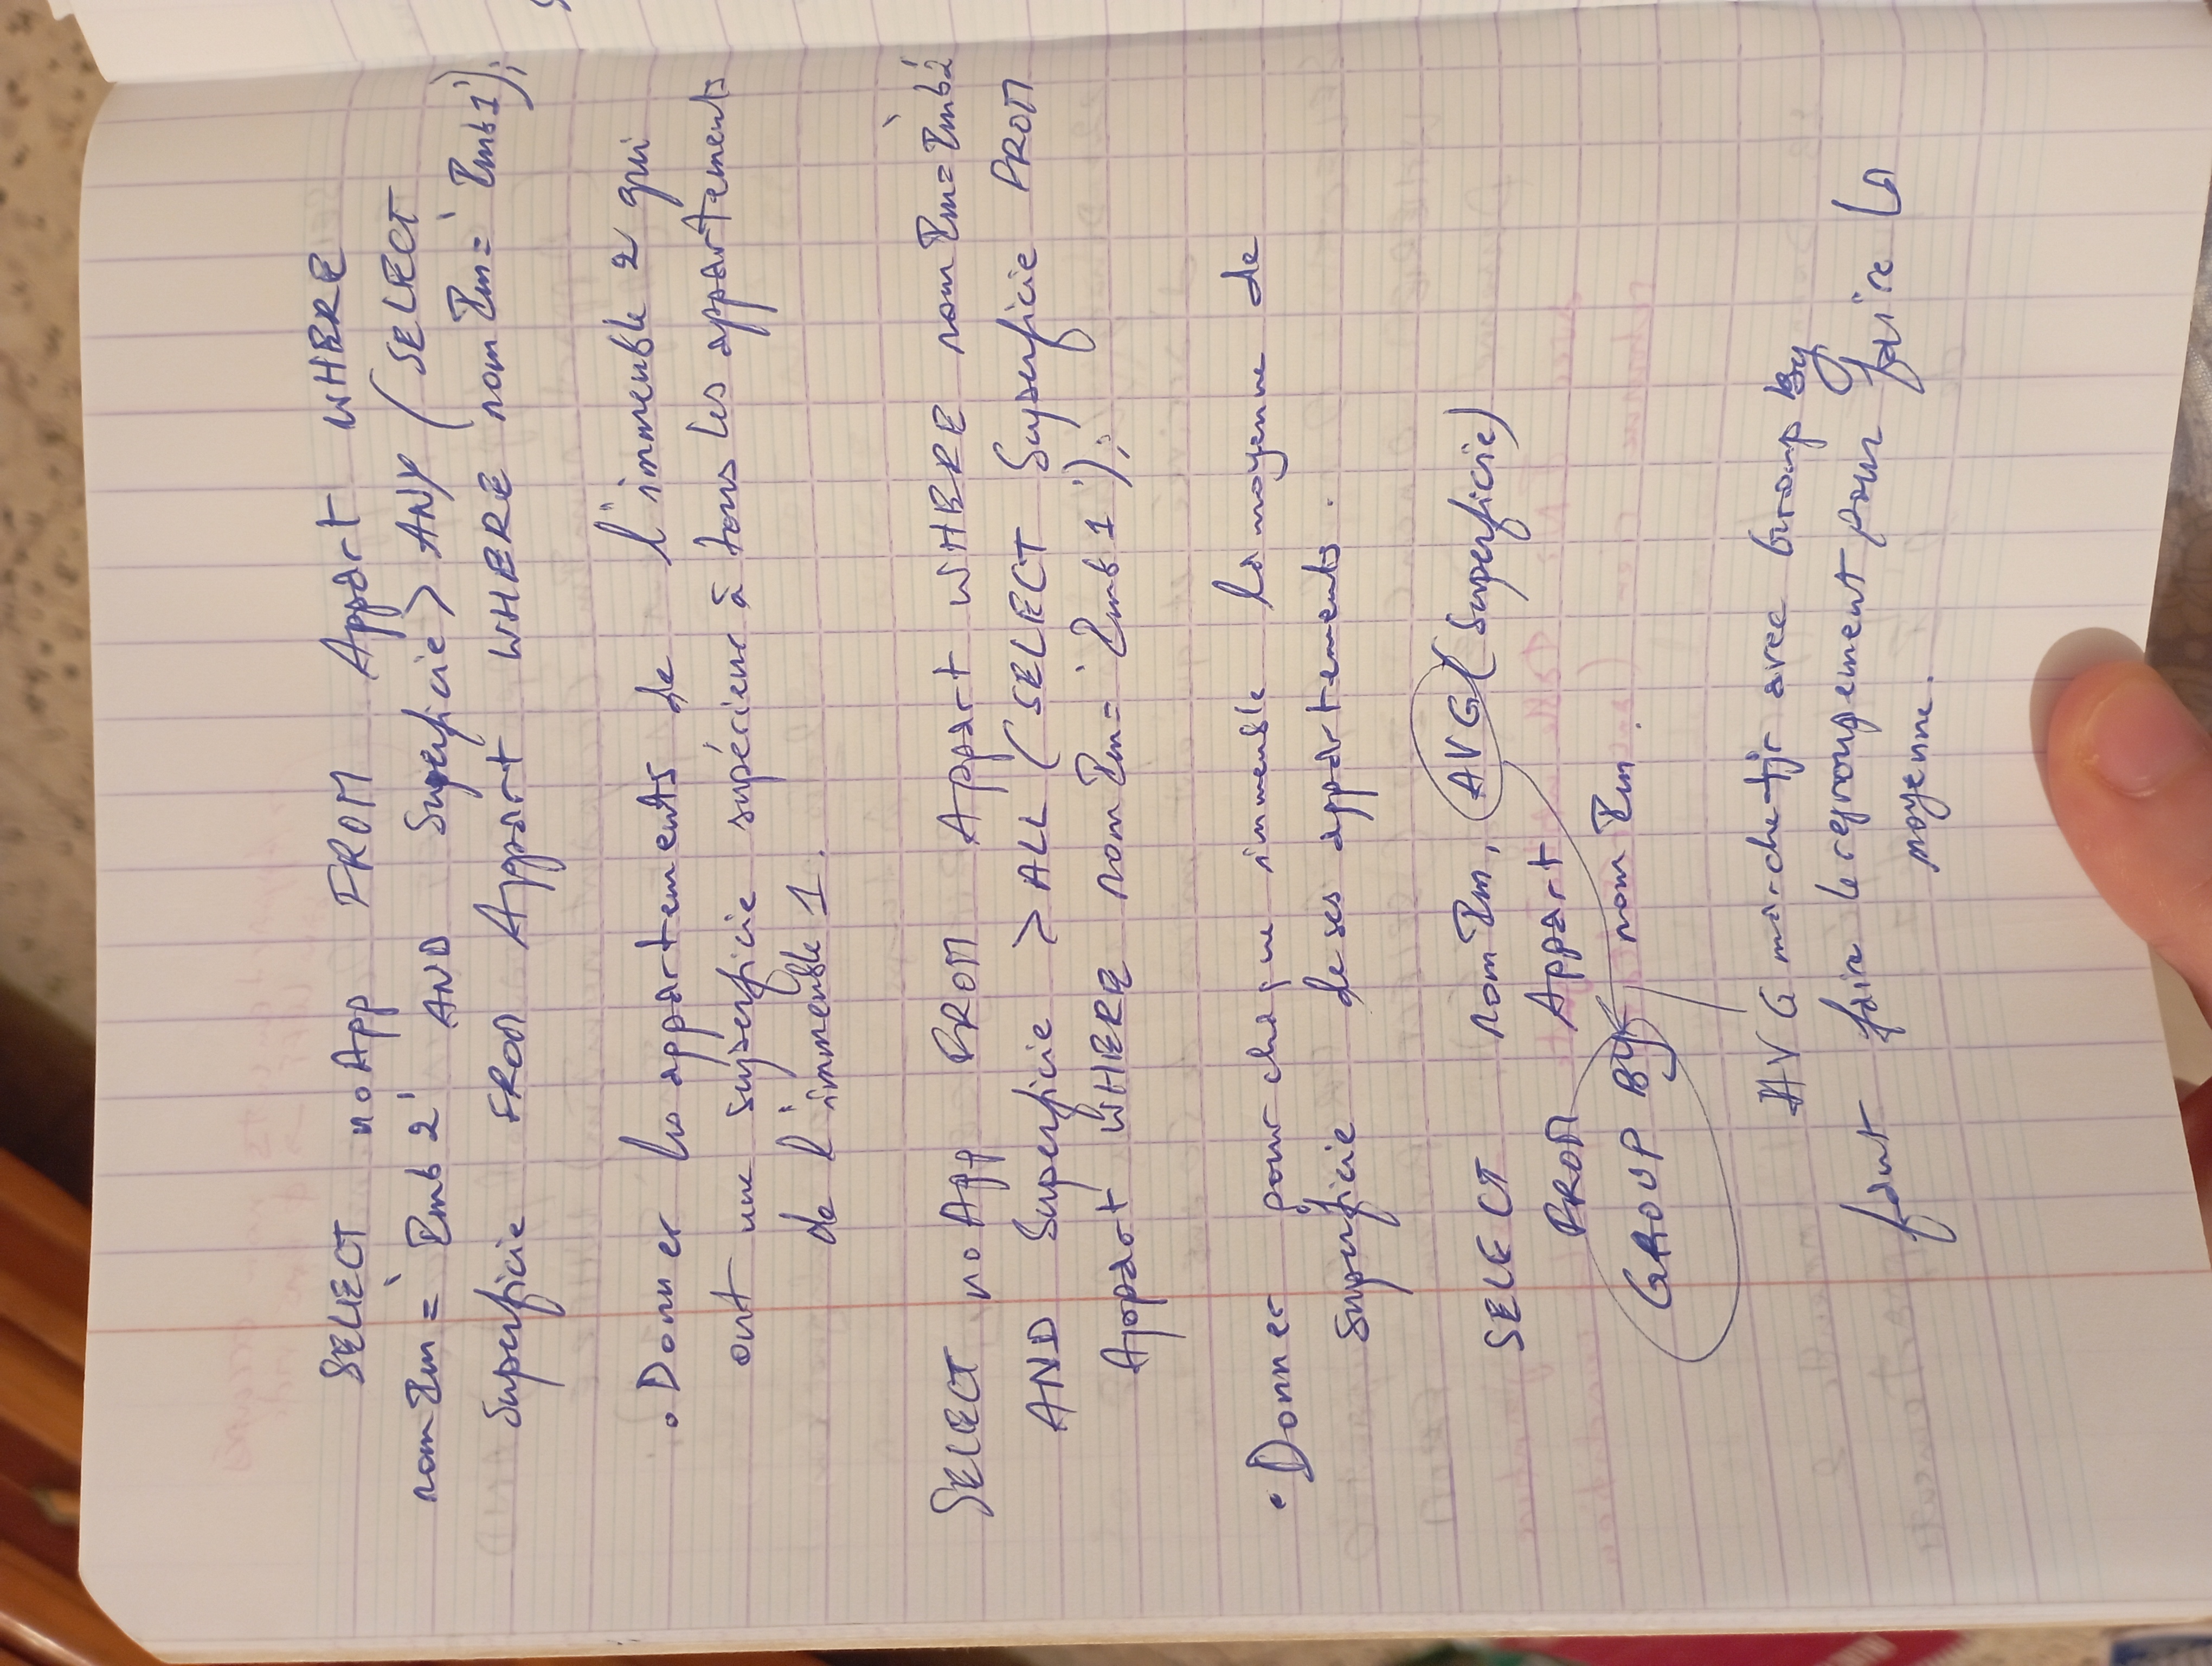 SELECT noApp FROM Appart WHERE
nomIm = 'Imb2' AND Superficie > ANY (SELECT
Superficie FROM Appart WHERE nomIm = 'Imb1');
• Donner les appartements de l'immeuble 2 qui
ont une superficie supérieur à tous les appartements
de l'immeuble 1.
SELECT noApp FROM Appart WHERE nomIm = 'Imb2'
AND Superficie > ALL (SELECT Superficie FROM
Appart WHERE nomIm = 'Imb1');
• Donner pour chaque immeuble la moyenne de
Superficie de ses appartements.
SELECT nomIm, AVG(Superficie)
FROM Appart
GROUP BY nomIm
AVG marche tjr avec Group by
faut faire le regroupement pour faire la
moyenne.